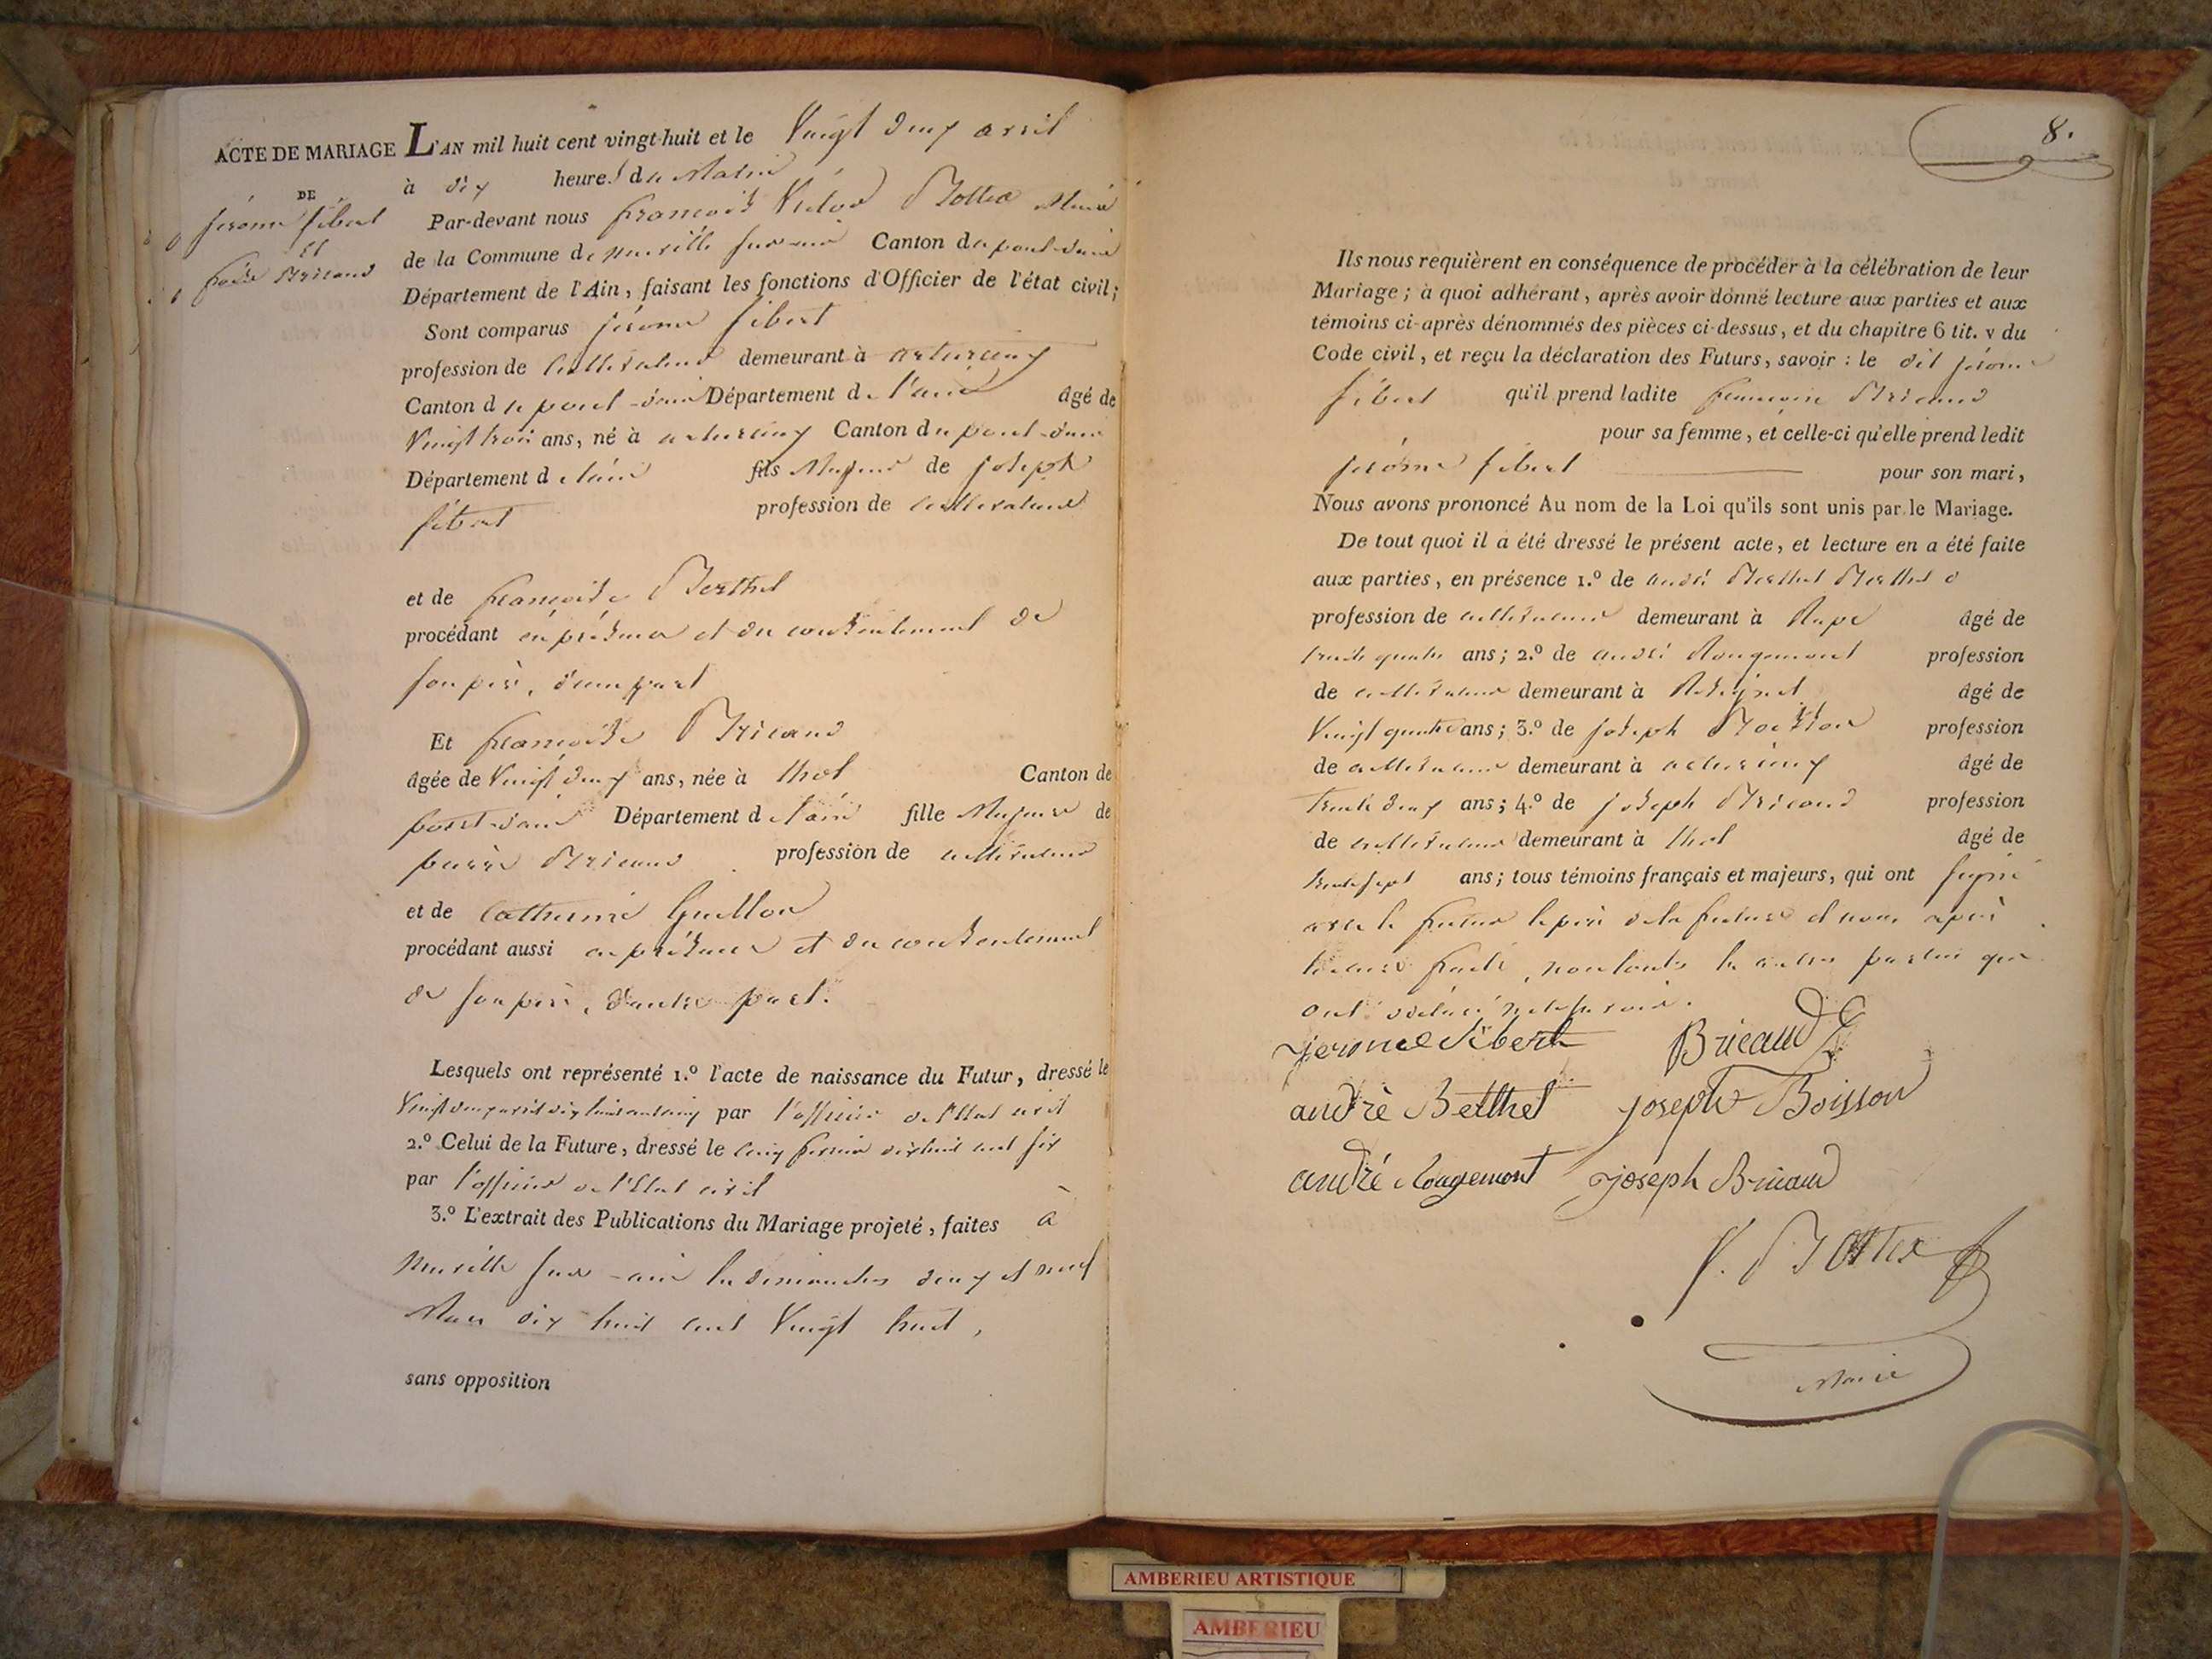 ACTE DE MARIAGE
DE
jérome sibert
et
foise Bricaud
L'AN mil huit cent vingt-huit et le Vingt deux avril
à dix heures du Matin
Par-devant nous françois Victor Bottex Maire
de la Commune de neuville sur ain Canton du pont-dain
Département de l'Ain, faisant les fonctions d'Officier de l'état civil;
Sont comparus jérome sibert
profession de cultivateur demeurant à
Canton du pont-dain Département de l'ain âgé de
Vingt trois ans, né à Canton du pont-dain
Département de l'ain fils Majeur de joseph
sibert profession de cultivateur
et de françoise Berthet
procédant en présence et du consentement de
son père, d'une part
Et françoise Bricaud
âgée de Vingt deux ans, née à thol Canton de
pont-dain Département de l'ain fille Majeure de
pierre Bricaud profession de cultivateur
et de Catherine Guillon
procédant aussi en présence et du consentement
de son père, d'autre part.
Lesquels ont représenté 1.º l'acte de naissance du Futur, dressé le
par l'officier de l'état civil
2.º Celui de la Future, dressé le cinq dixhuit cent six
par l'officier de l'Etat civil
3.º L'extrait des Publications du Mariage projeté, faites à
Neuville sur-ain les dimanches deux et neuf
Mars dix huit cent Vingt huit,
sans opposition
8.
Ils nous requièrent en conséquence de procéder à la célébration de leur
Mariage; à quoi adhérant, après avoir donné lecture aux parties et aux
témoins ci-après dénommés des pièces ci-dessus, et du chapitre 6 tit. v du
Code civil, et reçu la déclaration des Futurs, savoir : le dit jérome
sibert qu'il prend ladite françoise Bricaud
pour sa femme, et celle-ci qu'elle prend ledit
jérome sibert pour son mari,
Nous avons prononcé Au nom de la Loi qu'ils sont unis par le Mariage.
De tout quoi il a été dressé le présent acte, et lecture en a été faite
aux parties, en présence 1.º de andré Berthet
profession de cultivateur demeurant à âgé de
trente quatre ans; 2.º de andré Rougemont profession
de cultivateur demeurant à âgé de
Vingt quatre ans; 3.º de joseph Boisson profession
de cultivateur demeurant à âgé de
trente deux ans; 4.º de joseph Bricaud profession
de cultivateur demeurant à thol âgé de
trente sept ans; tous témoins français et majeurs, qui ont signé
avec le futur le père de la future et nous après
lecture faite, les autres parties que
ont déclaré ne le savoir.
jerome Sibert Bricaud
andrè Berthet joseph Boisson
andré Rougemont joseph Bricaud
V. Bottex
Maire
AMBERIEU ARTISTIQUE
AMBERIEU